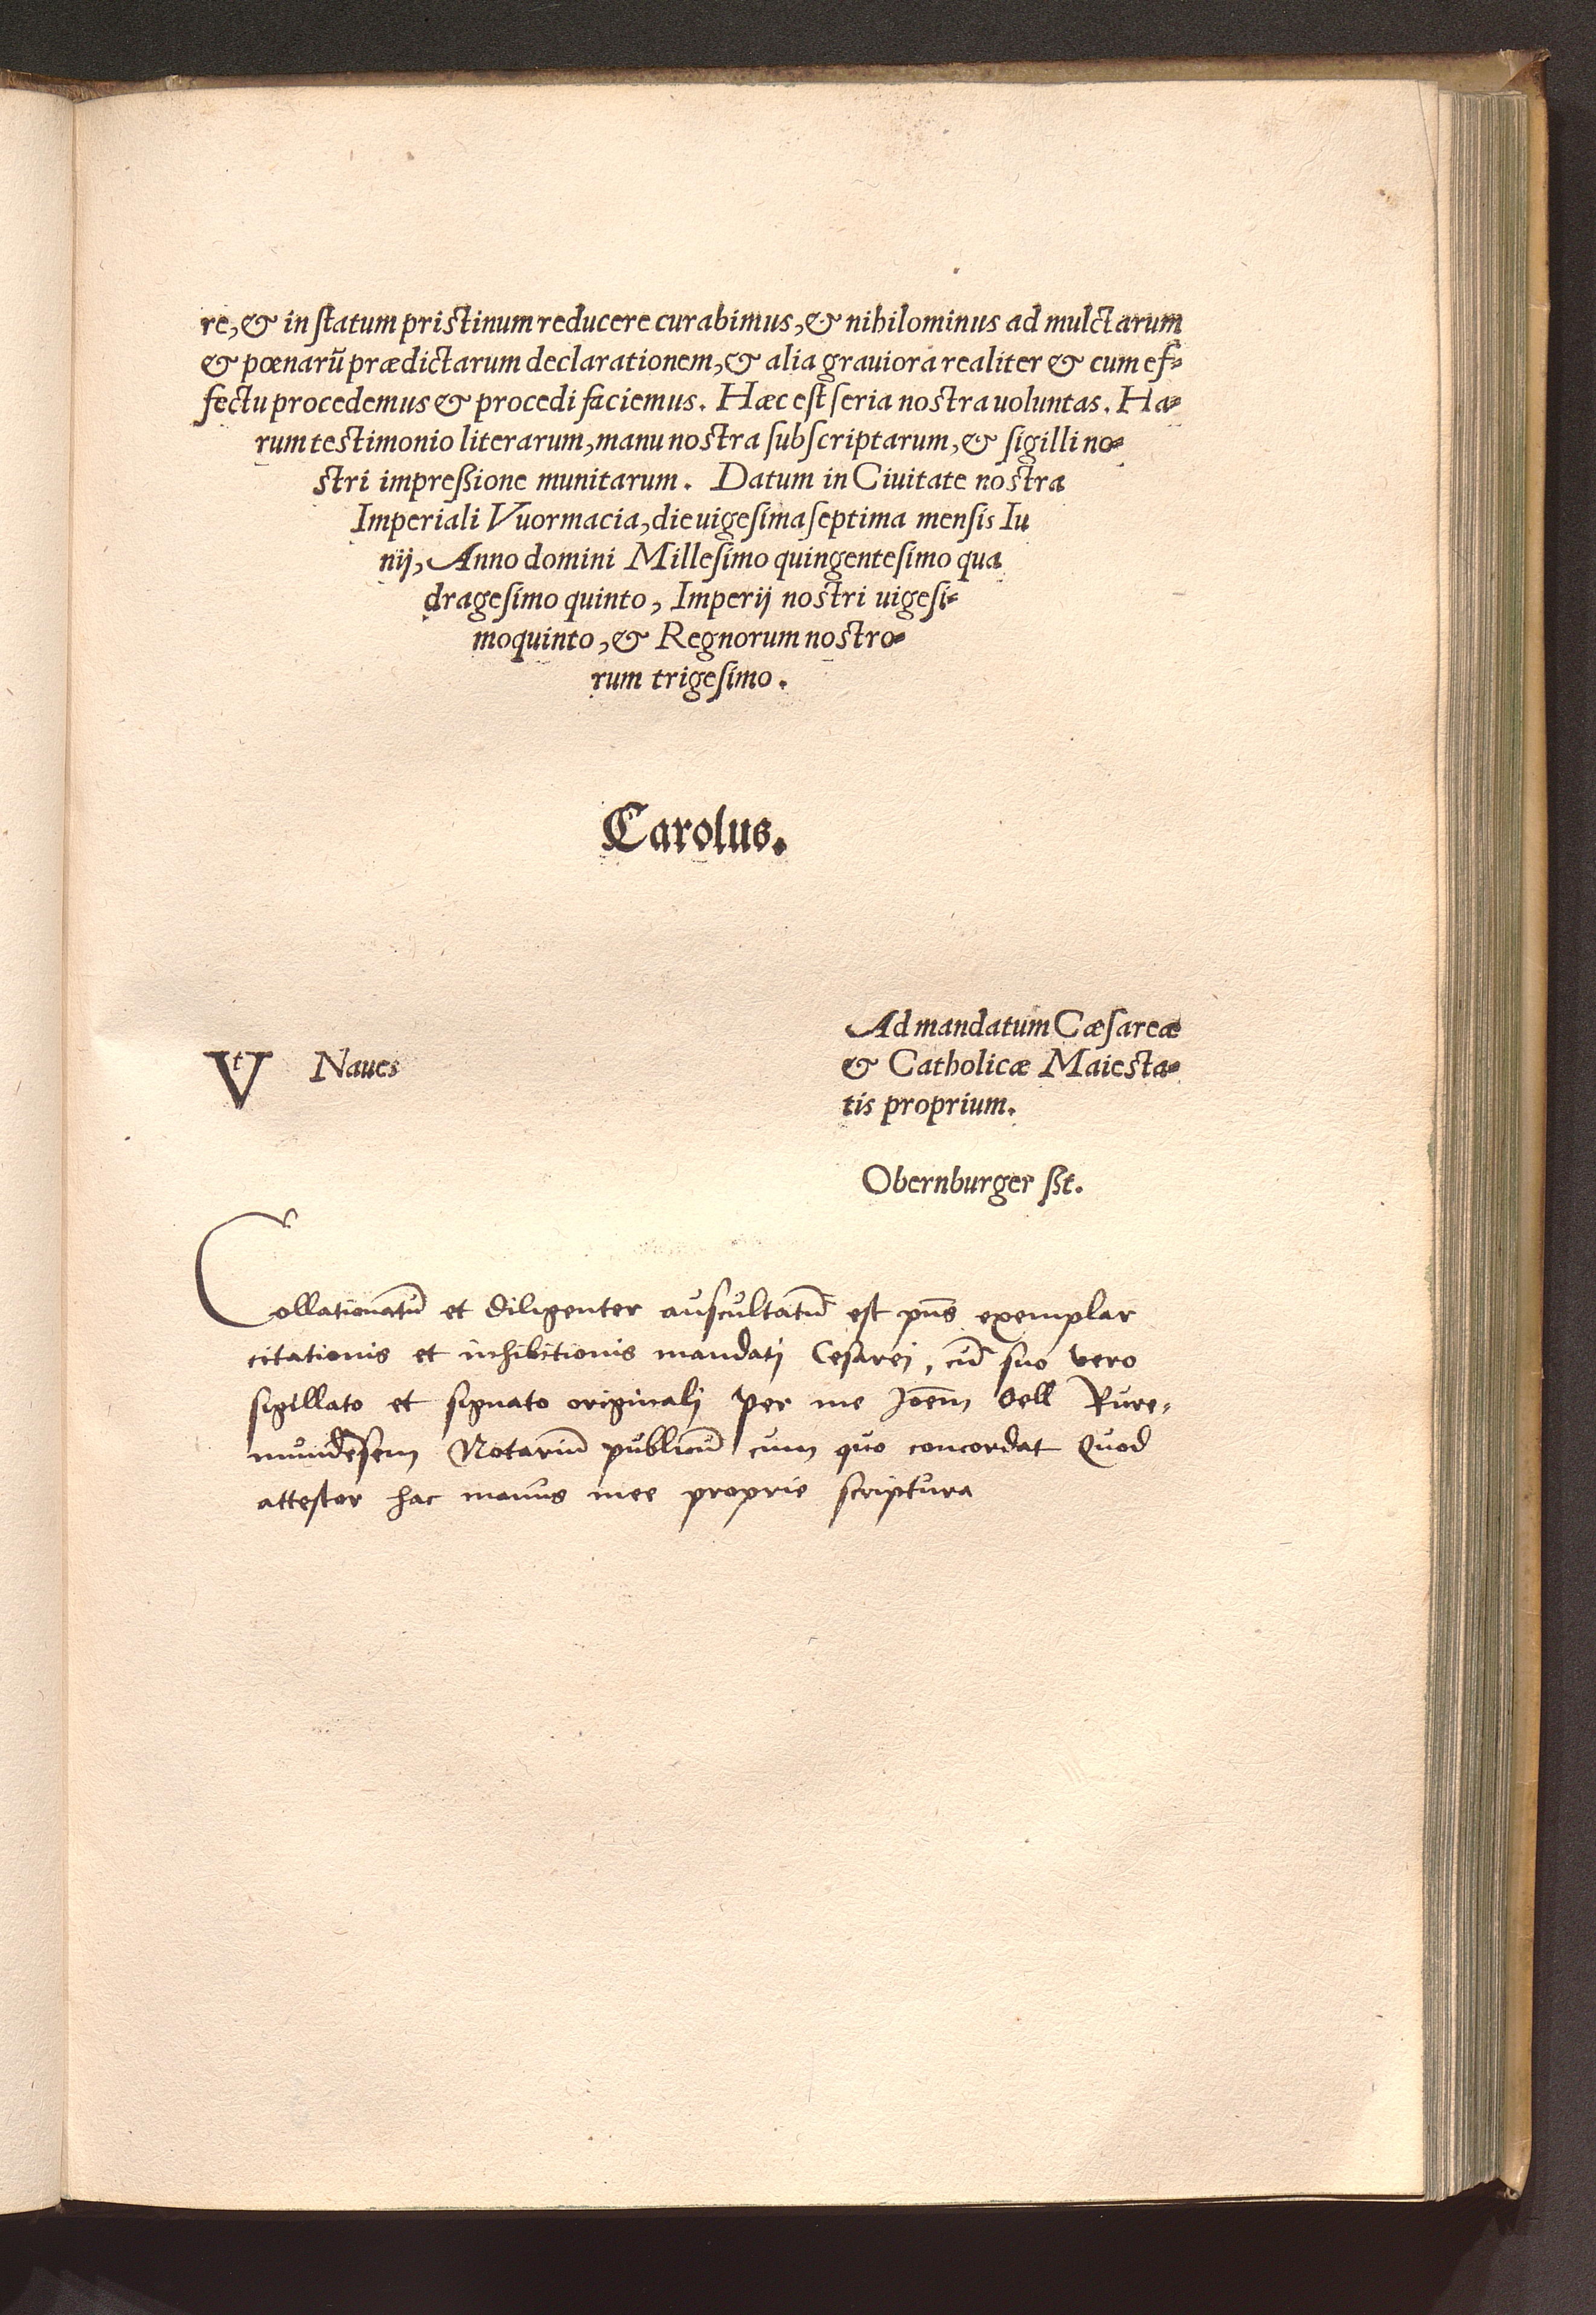 re, & in ſtatum priſtinum reducere curabimus, & nihilominus ad mulctarum
& pœnarū prædictarum declarationem, & alia grauiora realiter & cum ef-
fectu procedemus & procedi faciemus. Hæc eſt ſeria noſtra uoluntas. Ha-
rum teſtimonio literarum, manu noſtra ſubſcriptarum, & ſigilli no-
ſtri impreßione munitarum. Datum in Ciuitate noſtra
Imperiali Vuormacia, die uigeſima ſeptima menſis Iu
nij, Anno domini Milleſimo quingenteſimo qua
drageſimo quinto, Imperij noſtri uigeſi-
moquinto, & Regnorum noſtro-
rum trigeſimo.
Carolus.
Vt Naues
Ad mandatum Cæſareæ
& Catholicæ Maieſta-
tis proprium.
Obernburger ßt.
Collationatū et diligenter auscultatū est pn̄s exemplar
citationis et inhibitionis mandatj Cesarej, cū suo vero
sigillato et signato originalj per me Joēm Sell Rure-
mundēsem Notariū publicū cum quo concordat Quod
attestor hac manus mee proprie scriptura